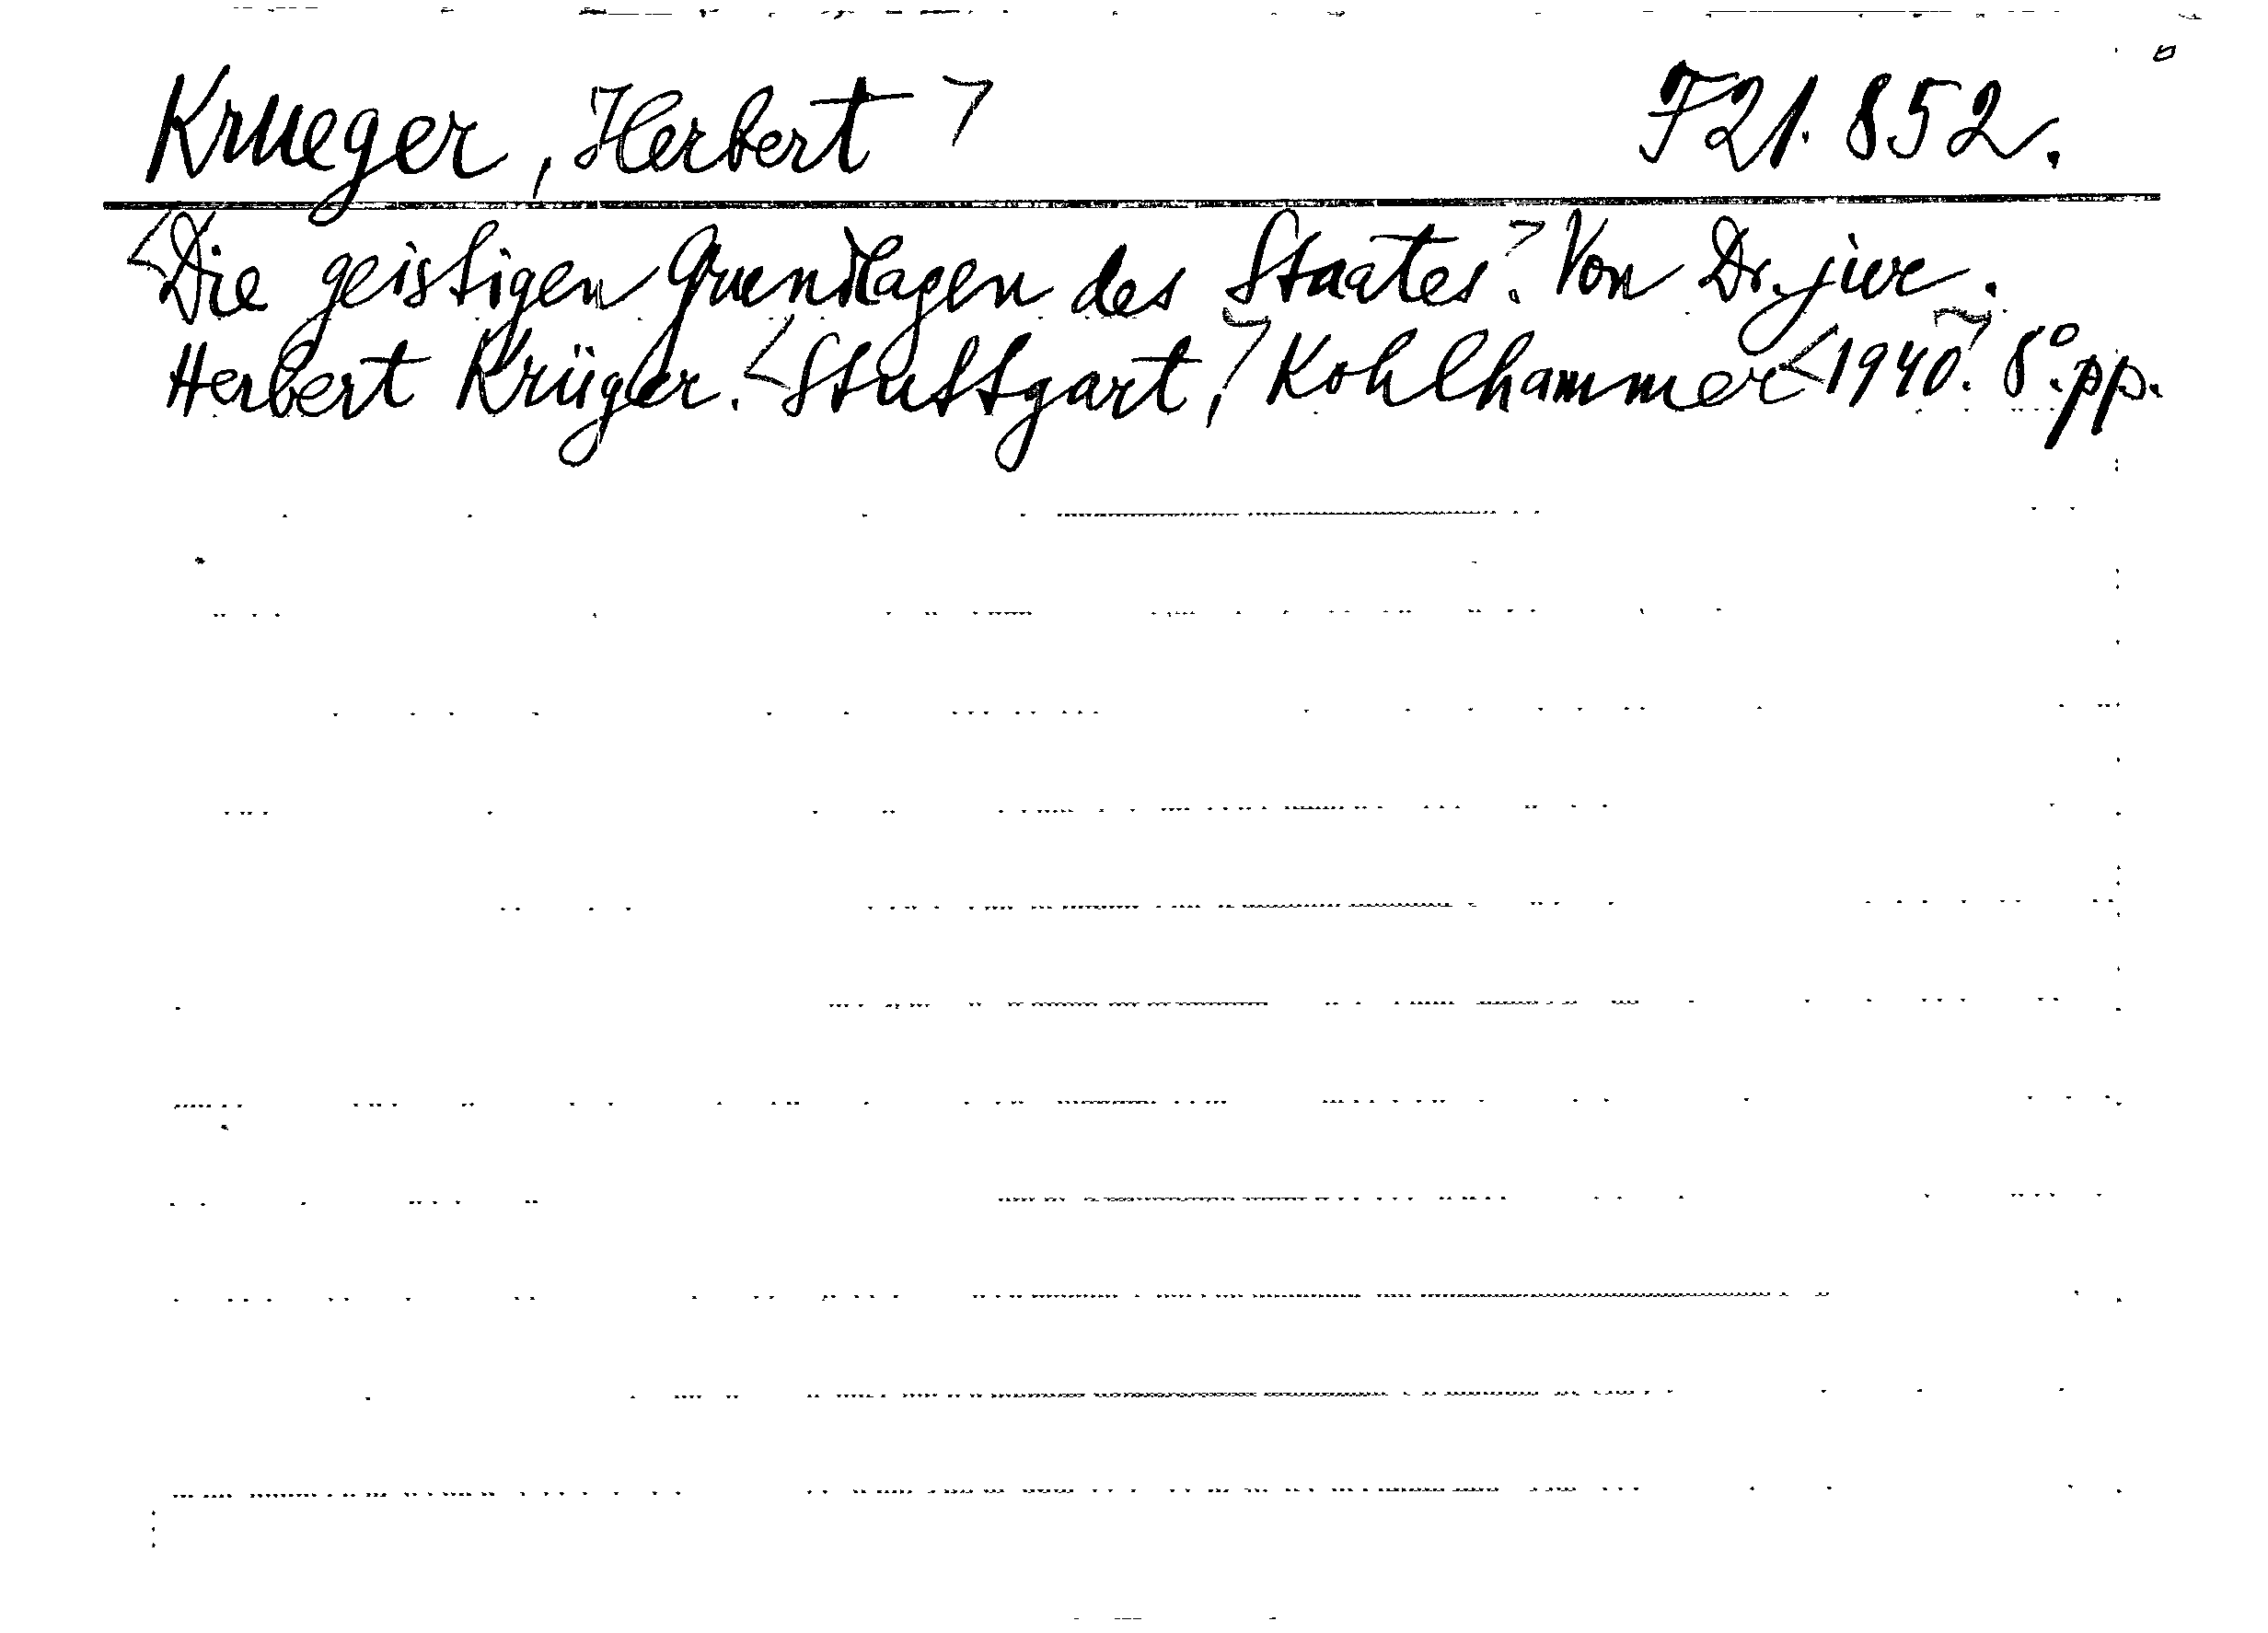 Krueger, Herbert 721.852.
Die geistigen Grundlagen des Staates. Von Dr. jur.
Herbert Krüger. Stuttgart, Kohlhammer 1940. 8° pp.